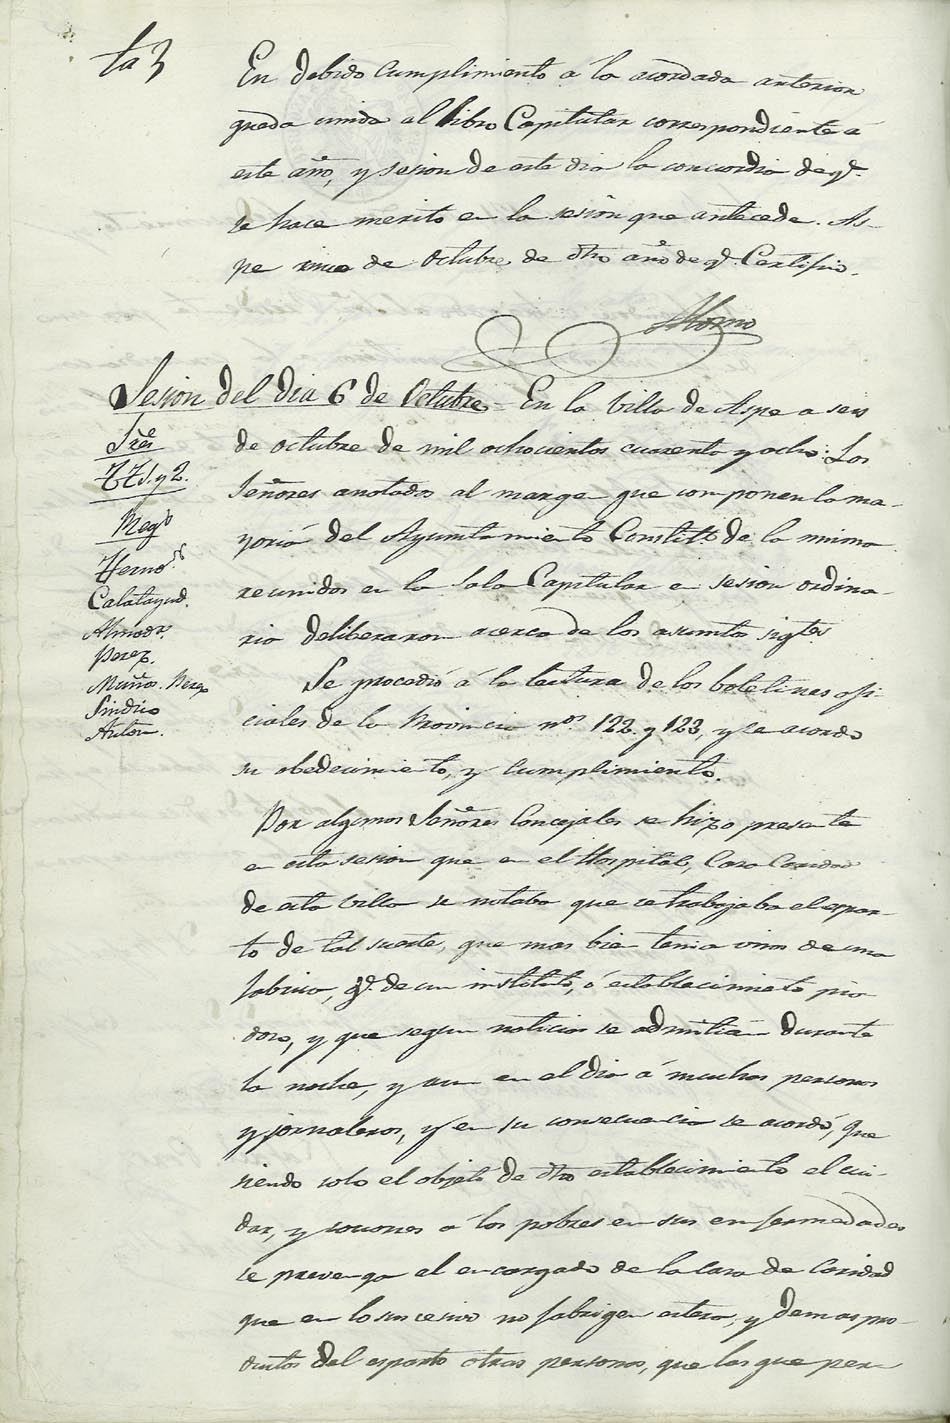 En debido cumplimiento a lo acordado anterior
queda unida al libro Capitular correspondiente á
este año, y sesion de este dia la concordia de qe.
se hace merito en la sesion que antecede. As-
pe cinco de Octubre de dho año de qe. Certifico.
Sesion del dia 6 de Octubre - En la villa de Aspe a seis
de octubre de mil ochocientos cuarenta y ocho: Los
Señores anotados al margen que componen la ma-
yoria del Ayuntamiento Constitl. de la misma
reunidos en la Sala Capitular en sesion ordina-
ria deliberaron acerca de los asuntos sigtes
Sres
TTS. y 2.
Regs
Hernz.
Calatayud.
Almodr.
Perez.
Muños. Perez
Sindico
Anton.
Se procedió á la lectura de los boletines ofi-
ciales de la Provincia nos. 122 y 123, y se acordo
su obedecimiento, y cumplimiento.
Por algunos Señores Concejales se hizo presente
en esta sesion que en el Hospital, Casa Caridad
de esta villa se notaba que se trabajaba el espar-
to de tal suerte, que mas bien tenia visos de una
fabrica, qe. de un instituto, ó establecimiento pia-
doso, y que segun noticias se admitian durante
la noche, y aun en el dia á muchas personas
y jornaleros, y en su consecuencia se acordó, que
siendo solo el objeto de dho establecimiento el cui-
dar, y socorrer á los pobres en sus enfermedades
se prevenga al encargado de la Casa de Caridad
que en lo sucesivo no fabriquen estera, y demas pro-
ductos del esparto otras personas, que las que per-